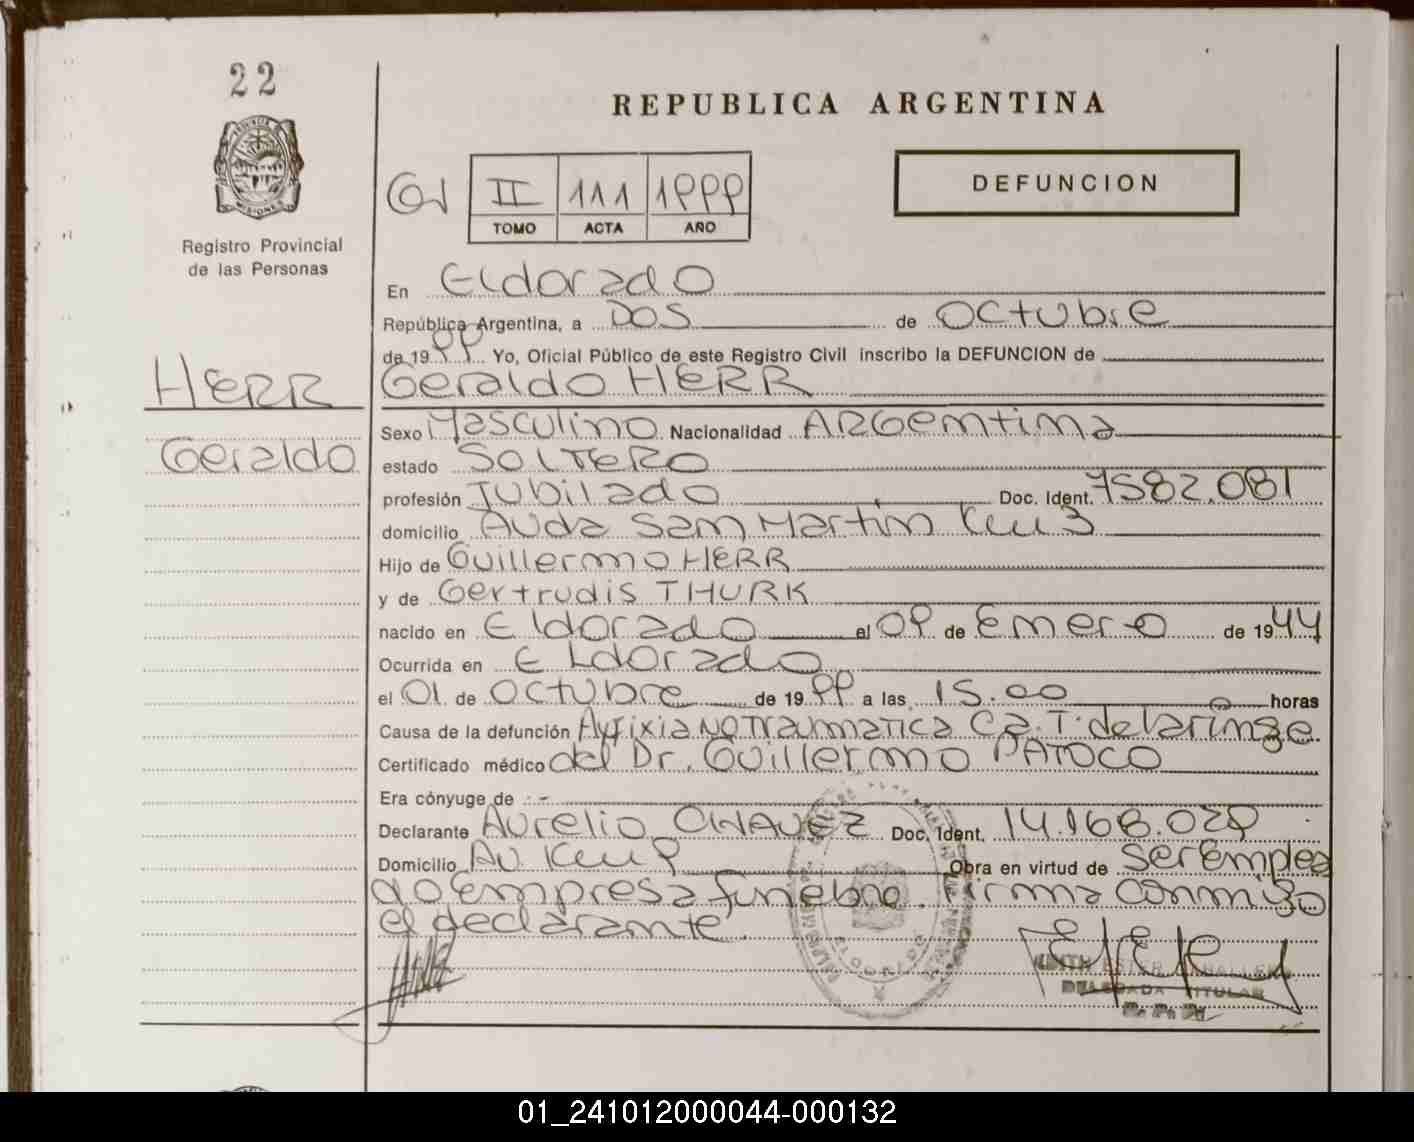 22
REPUBLICA ARGENTINA
DEFUNCION
II 111 1999
TOMO ACTA AÑO
MISIONES
Registro Provincial
de las Personas
En Eldorado
República Argentina, a DOS de Octubre
de 1999 Yo, Oficial Público de este Registro Civil inscribo la DEFUNCION de
HERR
Geraldo HERR
Sexo Masculino Nacionalidad ARGentina
Geraldo
estado SOLTERO
profesión Jubilado Doc. Ident. 7582.081
domicilio Avda San Martin Km 3
Hijo de Guillermo HERR
y de Gertrudis THURK
nacido en Eldorado el 09 de Enero de 1944
Ocurrida en Eldorado
el 01 de Octubre de 1999 a las 15.00 horas
Causa de la defunción Asfixia NO Traumatica Ca. T. de laringe
Certificado médico del Dr. Guillermo PATOCO
Era cónyuge de - -
Declarante Aurelio CHAVEZ Doc. Ident. 14.168.029
Domicilio Av Km 9 Obra en virtud de ser emplea
do empresa funebre. Firma conmigo
el declarante.
EDITH ESTER CABALLERO
DELEGADA TITULAR
R. P. P.
01_241012000044-000132